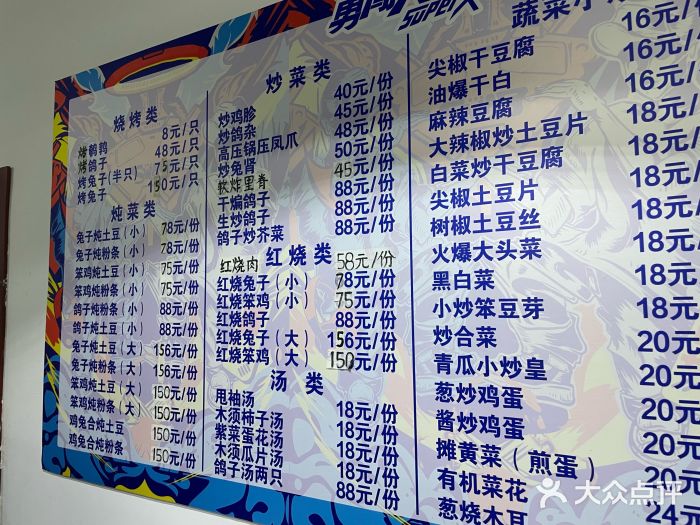 勇闯
SUPER
烧烤类
烤鹌鹑 8元/只
烤鸽子 48元/只
烤兔子(半只) 75元/只
烤兔子 150元/只
炖菜类
兔子炖土豆(小) 78元/份
兔子炖粉条(小) 78元/份
笨鸡炖土豆(小) 75元/份
笨鸡炖粉条(小) 75元/份
鸽子炖粉条(小) 88元/份
鸽子炖土豆(小) 88元/份
兔子炖土豆(大) 156元/份
兔子炖粉条(大) 156元/份
笨鸡炖土豆(大) 150元/份
笨鸡炖粉条(大) 150元/份
鸡兔合炖土豆 150元/份
鸡兔合炖粉条 150元/份
炒菜类
炒鸡胗 40元/份
炒鸽杂 45元/份
高压锅压凤爪 48元/份
炒兔肾 50元/份
软炸里脊 45元/份
干煸鸽子 88元/份
生炒鸽子 88元/份
鸽子炒芥菜 88元/份
红烧类
红烧肉 58元/份
红烧兔子(小) 78元/份
红烧笨鸡(小) 75元/份
红烧鸽子 88元/份
红烧兔子(大) 156元/份
红烧笨鸡(大) 150元/份
汤类
甩袖汤 18元/份
木须柿子汤 18元/份
紫菜蛋花汤 18元/份
木须瓜片汤 18元/份
鸽子汤两只 88元/份
蔬菜小
尖椒干豆腐 16元/
油爆干白 16元/
麻辣豆腐 16元/
大辣椒炒土豆片 18元/
白菜炒干豆腐 18元/
尖椒土豆片 18元/
树椒土豆丝 18元/
火爆大头菜 18元/
黑白菜 18元/
小炒笨豆芽 18元
炒合菜 20元
青瓜小炒皇 20元
葱炒鸡蛋 20元
酱炒鸡蛋 20元
摊黄菜(煎蛋) 20元
有机菜花 20元
葱烧木耳 24元
大众点评